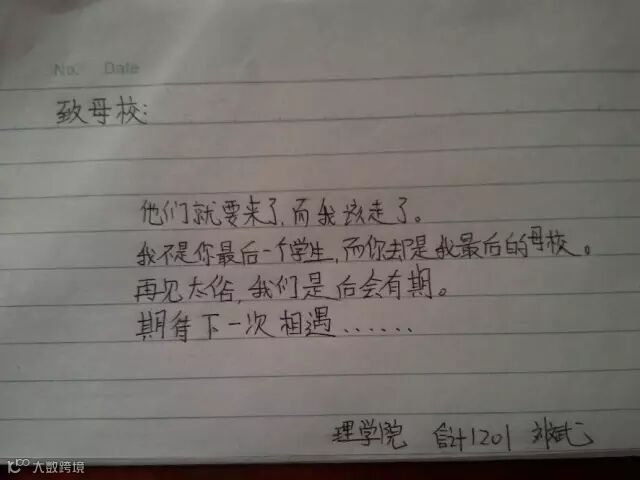 No. Date
致母校:
他们就要来了,而我该走了。
我不是你最后一个学生,而你却是我最后的母校。
再见太俗,我们是后会有期。
期待下一次相遇.......
理学院 信计1201 刘斌
大数跨境